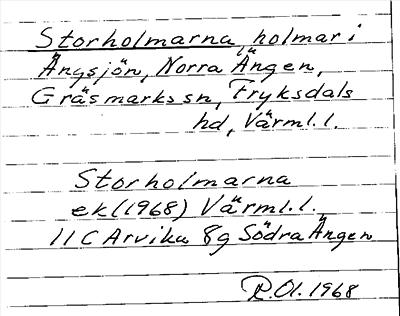 Storholmarna, holmar i
Ängsjön, Norra Ängen,
Gräsmarks sn, Fryksdals
hd, Värml. l.
Storholmarna
ek (1968) Värml. l.
11 C Arvika 8g Södra Ängen
R. Ol. 1968